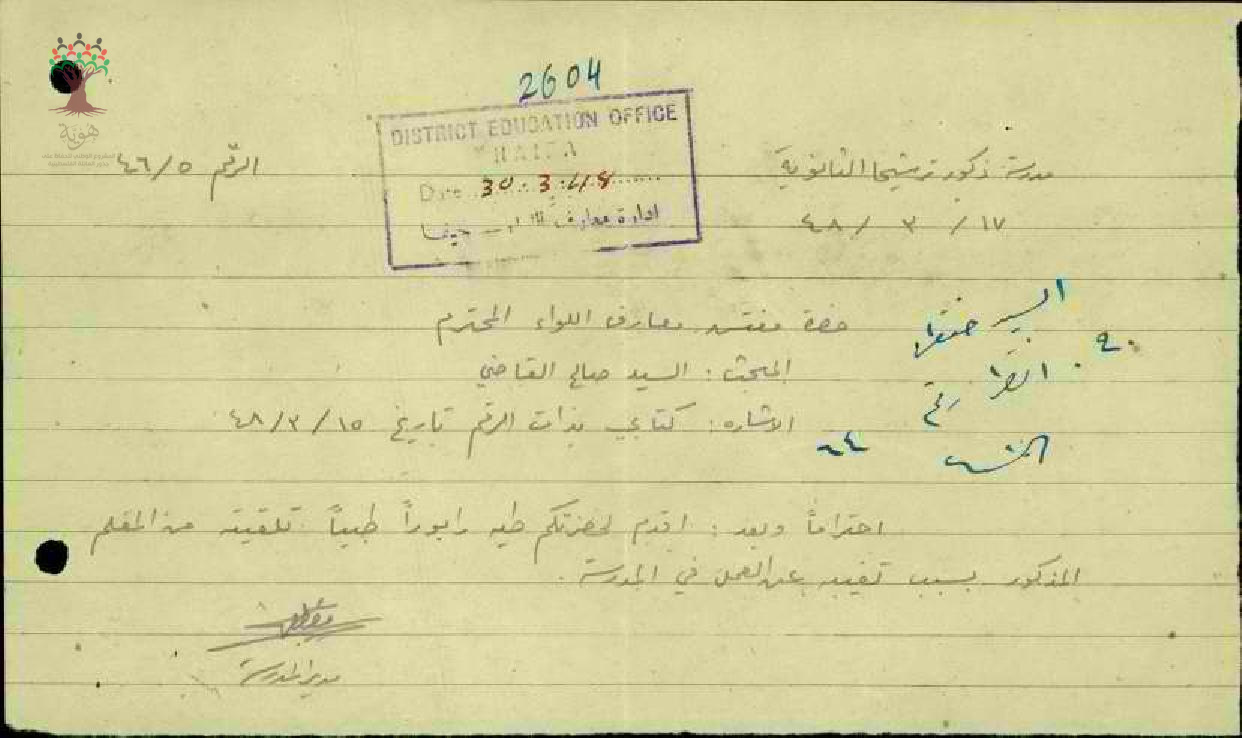 هوية
2604
DISTRICT EDUCATION OFFICE
HAIFA
Date 30.3.48
ادارة معارف حيفا
مدرسة ذكور ترشيحا الثانوية
الرقم ٤٦/٥
١٧ / ٣ / ٤٨
حضرة مفتش معارف اللواء المحترم
المبحث : السيد صالح القاضي
الاشاره : كتابي بذات الرقم تاريخ ١٥/٣/٤٨
السيد
٦٤
احتراماً وبعد : اقدم لحضرتكم طيه رابوراً طبياً تلقيته من المعلم
المذكور بسبب تغيبه عن العمل في المدرسة .
مدير المدرسة